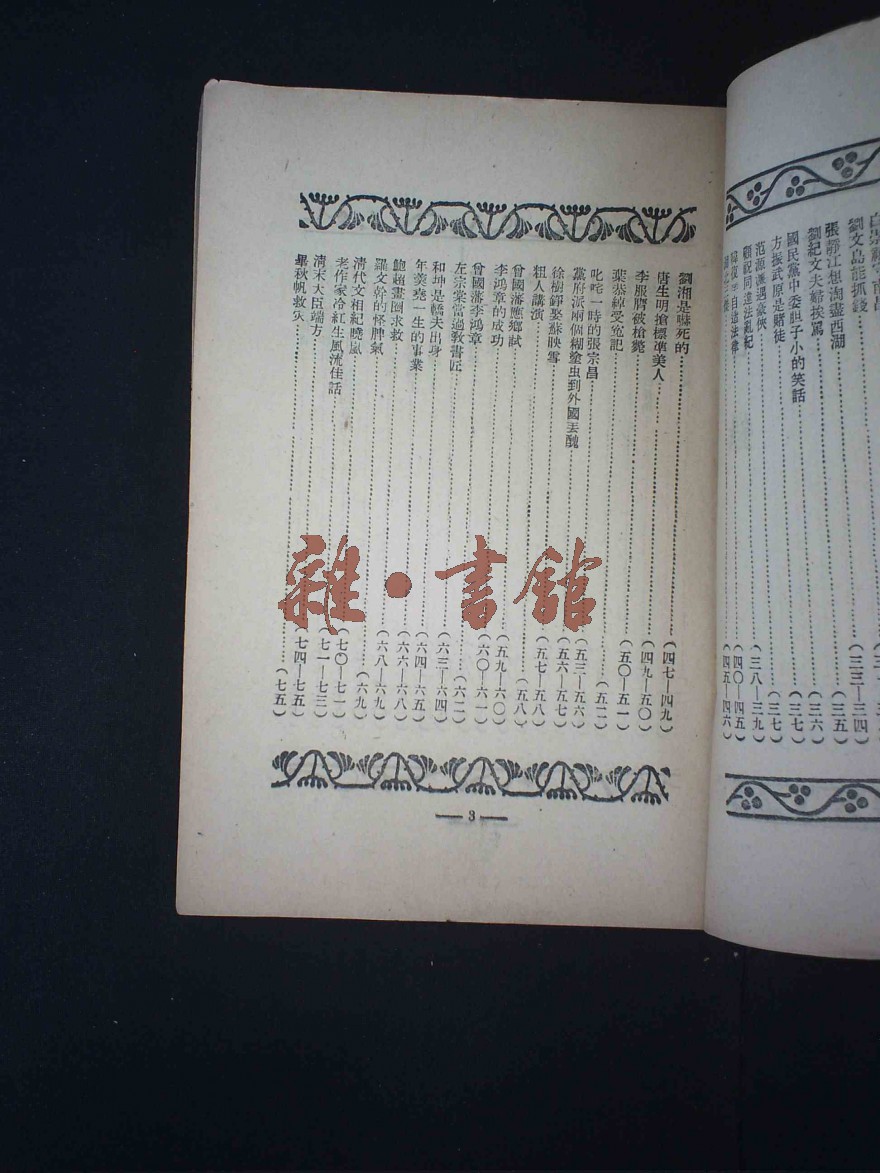 劉文島能抓錢（三三—三四）
張靜江想淘盡西湖（三五）
劉紀文夫婦挨罵（三六）
國民黨中委胆子小的笑話（三七）
方振武原是賭徒（三七）
范源濂遇豪俠（三八—三九）
顧祝同違法亂紀（四〇—四五）
韓復榘自造法律（四五—四六）
劉湘是嚇死的（四七—四九）
唐生明搶標準美人（四九—五〇）
李服膺被槍斃（五〇—五一）
葉恭綽受冤記（五二）
叱咤一時的張宗昌（五三—五六）
黨府派兩個糊塗虫到外國丟醜（五六—五七）
徐樹錚娶蘇映雪（五七—五八）
粗人講演（五八）
曾國藩應鄉試（五九—六〇）
李鴻章的成功（六〇—六一）
曾國藩李鴻章（六二）
左宗棠當過教書匠（六三—六四）
和珅是轎夫出身（六四—六五）
年羹堯一生的事業（六六—六八）
鮑超畫圈求救（六八—六九）
羅文幹的怪脾氣（六九）
清代文相紀曉嵐（七〇—七一）
老作家冷紅生風流佳話（七一—七三）
清末大臣端方（七四—七五）
畢秋帆救災（七五）
— 3 —
雜·書舘